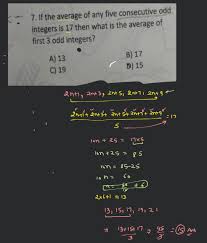 7. If the average of any five consecutive odd
integers is 17 then what is the average of
first 3 odd integers?
A) 13
B) 17
C) 19
D) 15
2n+1, 2n+3, 2n+5, 2n+7, 2n+9
2n+1+2n+3+2n+5+2n+7+2n+9 = 17
5
10n + 25 = 17×5
10n + 25 = 85
10n = 85-25
10n = 60
= 6
2×6+1 = 13
13, 15, 17, 19, 21
13+15+17
3
45
3
15 Ans